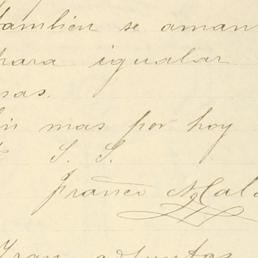 tambien se aman
para igualar
mas.
Sin mas por hoy
S. S.
Franco Mal
Fran adjuntas